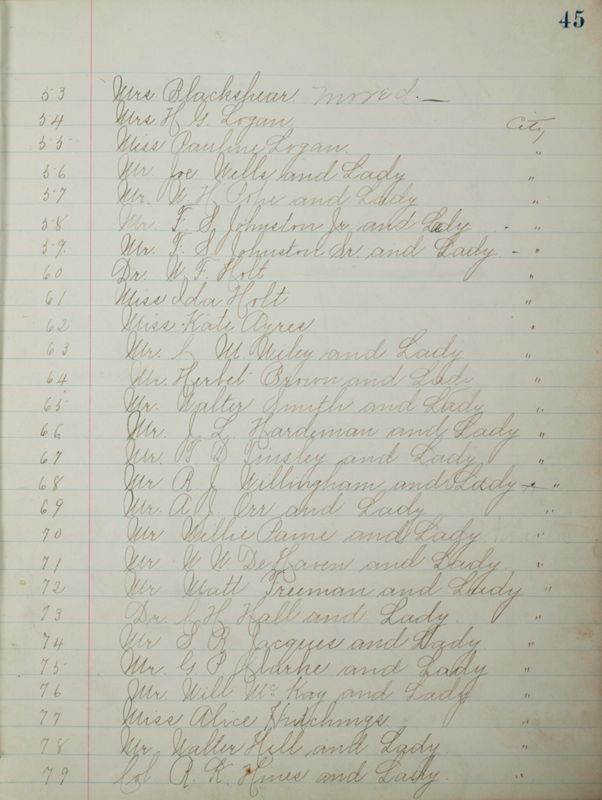 45
53 Mrs. Blackshear moved. —
54 Mrs. H. G. Logan City
55 Miss Pauline Logan "
56 Mr. Joe Wells and Lady "
57 Mr. W H Pope and Lady "
58 Mr. F. S. Johnston Jr. and Lady - "
59 Mr. F. S. Johnston Sr and Lady - "
60 Dr. W. F. Holt "
61 Miss Ida Holt "
62 Miss Kate Ayres "
63 Mr. C M. Wiley and Lady "
64 Mr. Herbet Brown and Lady "
65 Mr. Walter Smith and Lady "
66 Mr. J L Hardeman and Lady "
67 Mr. Tinsley and Lady "
68 Mr R J Willingham and Lady - "
69 Mr. A. J. Orr and Lady "
70 Mr Willie Paine and Lady "
71 Mr W W DeHaven and Lady "
72 Mr Matt Freeman and Lady "
73 Dr. C H Hall and Lady. "
74 Mr S. R. Jacques and Lady "
75 Mr. G P. Clarke and Lady "
76 Mr. Will McKay and Lady "
77 Miss Alice Hutchings "
78 Mr. Walter Hill and Lady "
79 Col R. K. Hines and Lady. "